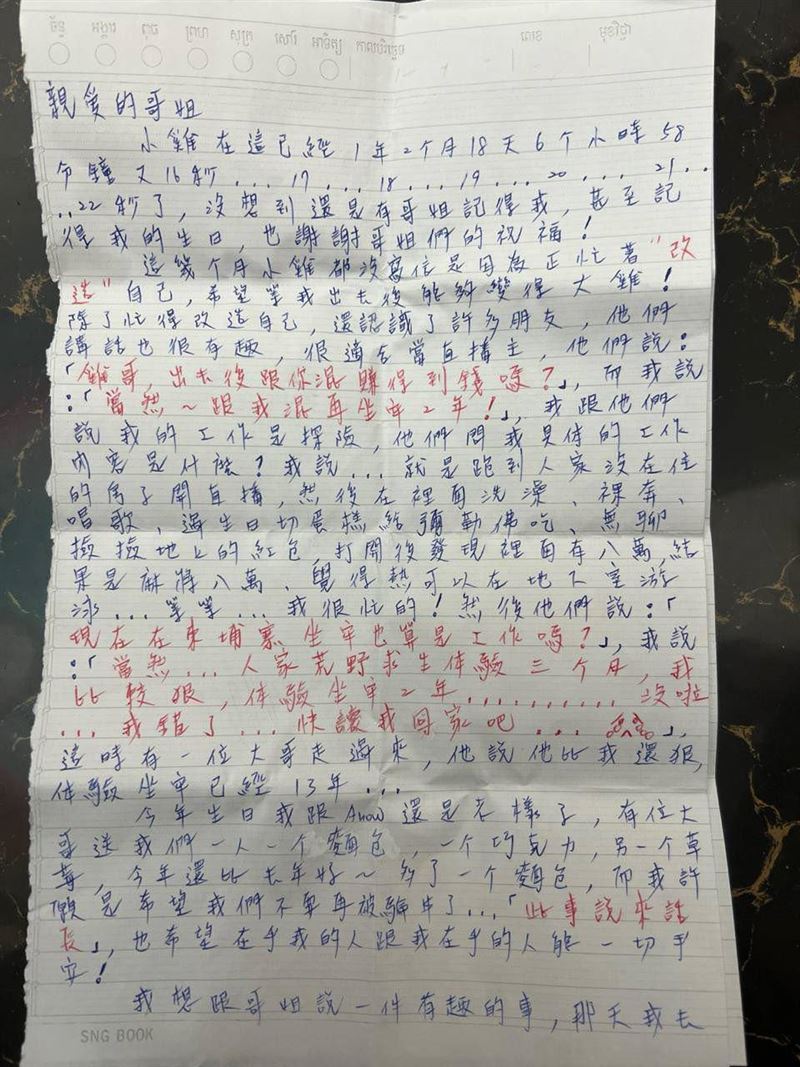 ច័ន្ទ អង្គារ ពុធ ព្រហ សុក្រ សៅរ៍ អាទិត្យ កាលបរិច្ឆេទ លេខ មុខវិជ្ជា
親愛的哥姐
小雞在這已經1年2个月18天6个小時58
分鐘又16秒...17...18...19...20...21..
..22秒了，沒想到還是有哥姐記得我，甚至記
得我的生日，也謝謝哥姐們的祝福！
這幾个月小雞都沒寫信是因為正忙著"改
造"自己，希望等我出去後能夠變得大雞！
除了忙得改造自己，還認識了許多朋友，他們
講話也很有趣，很適合當直播主，他們說：
「雞哥，出去後跟你混賺得到錢嗎？」，而我說
：「當然～跟我混再坐牢2年！」，我跟他們
說我的工作是探險，他們問我具体的工作
內容是什麼？我說...就是跑到人家沒在住
的房子開直播，然後在裡面洗澡、裸奔、
唱歌、過生日切蛋糕給彌勒佛吃、無聊
撿撿地上的紅包，打開後發現裡面有八萬，結
果是麻將八萬、覺得熱可以在地下室游
泳...等等...我很忙的！然後他們說：「
現在在柬埔寨坐牢也算是工作嗎？」，我說
：「當然...人家荒野求生体驗三个月，我
比較狠，体驗坐牢2年..........沒啦
...我錯了...快讓我回家吧...」，
這時有一位大哥走過來，他說他比我還狠，
体驗坐牢已經13年...
今年生日我跟Anow還是老樣子，有位大
哥送我們一人一个麵包，一个巧克力，另一个草
莓，今年還比去年好～多了一个麵包，而我許
願是希望我們不要再被騙牛了...「此事說來話
長」，也希望在乎我的人跟我在乎的人能一切平
安！
我想跟哥姐說一件有趣的事，那天我去
SNG BOOK